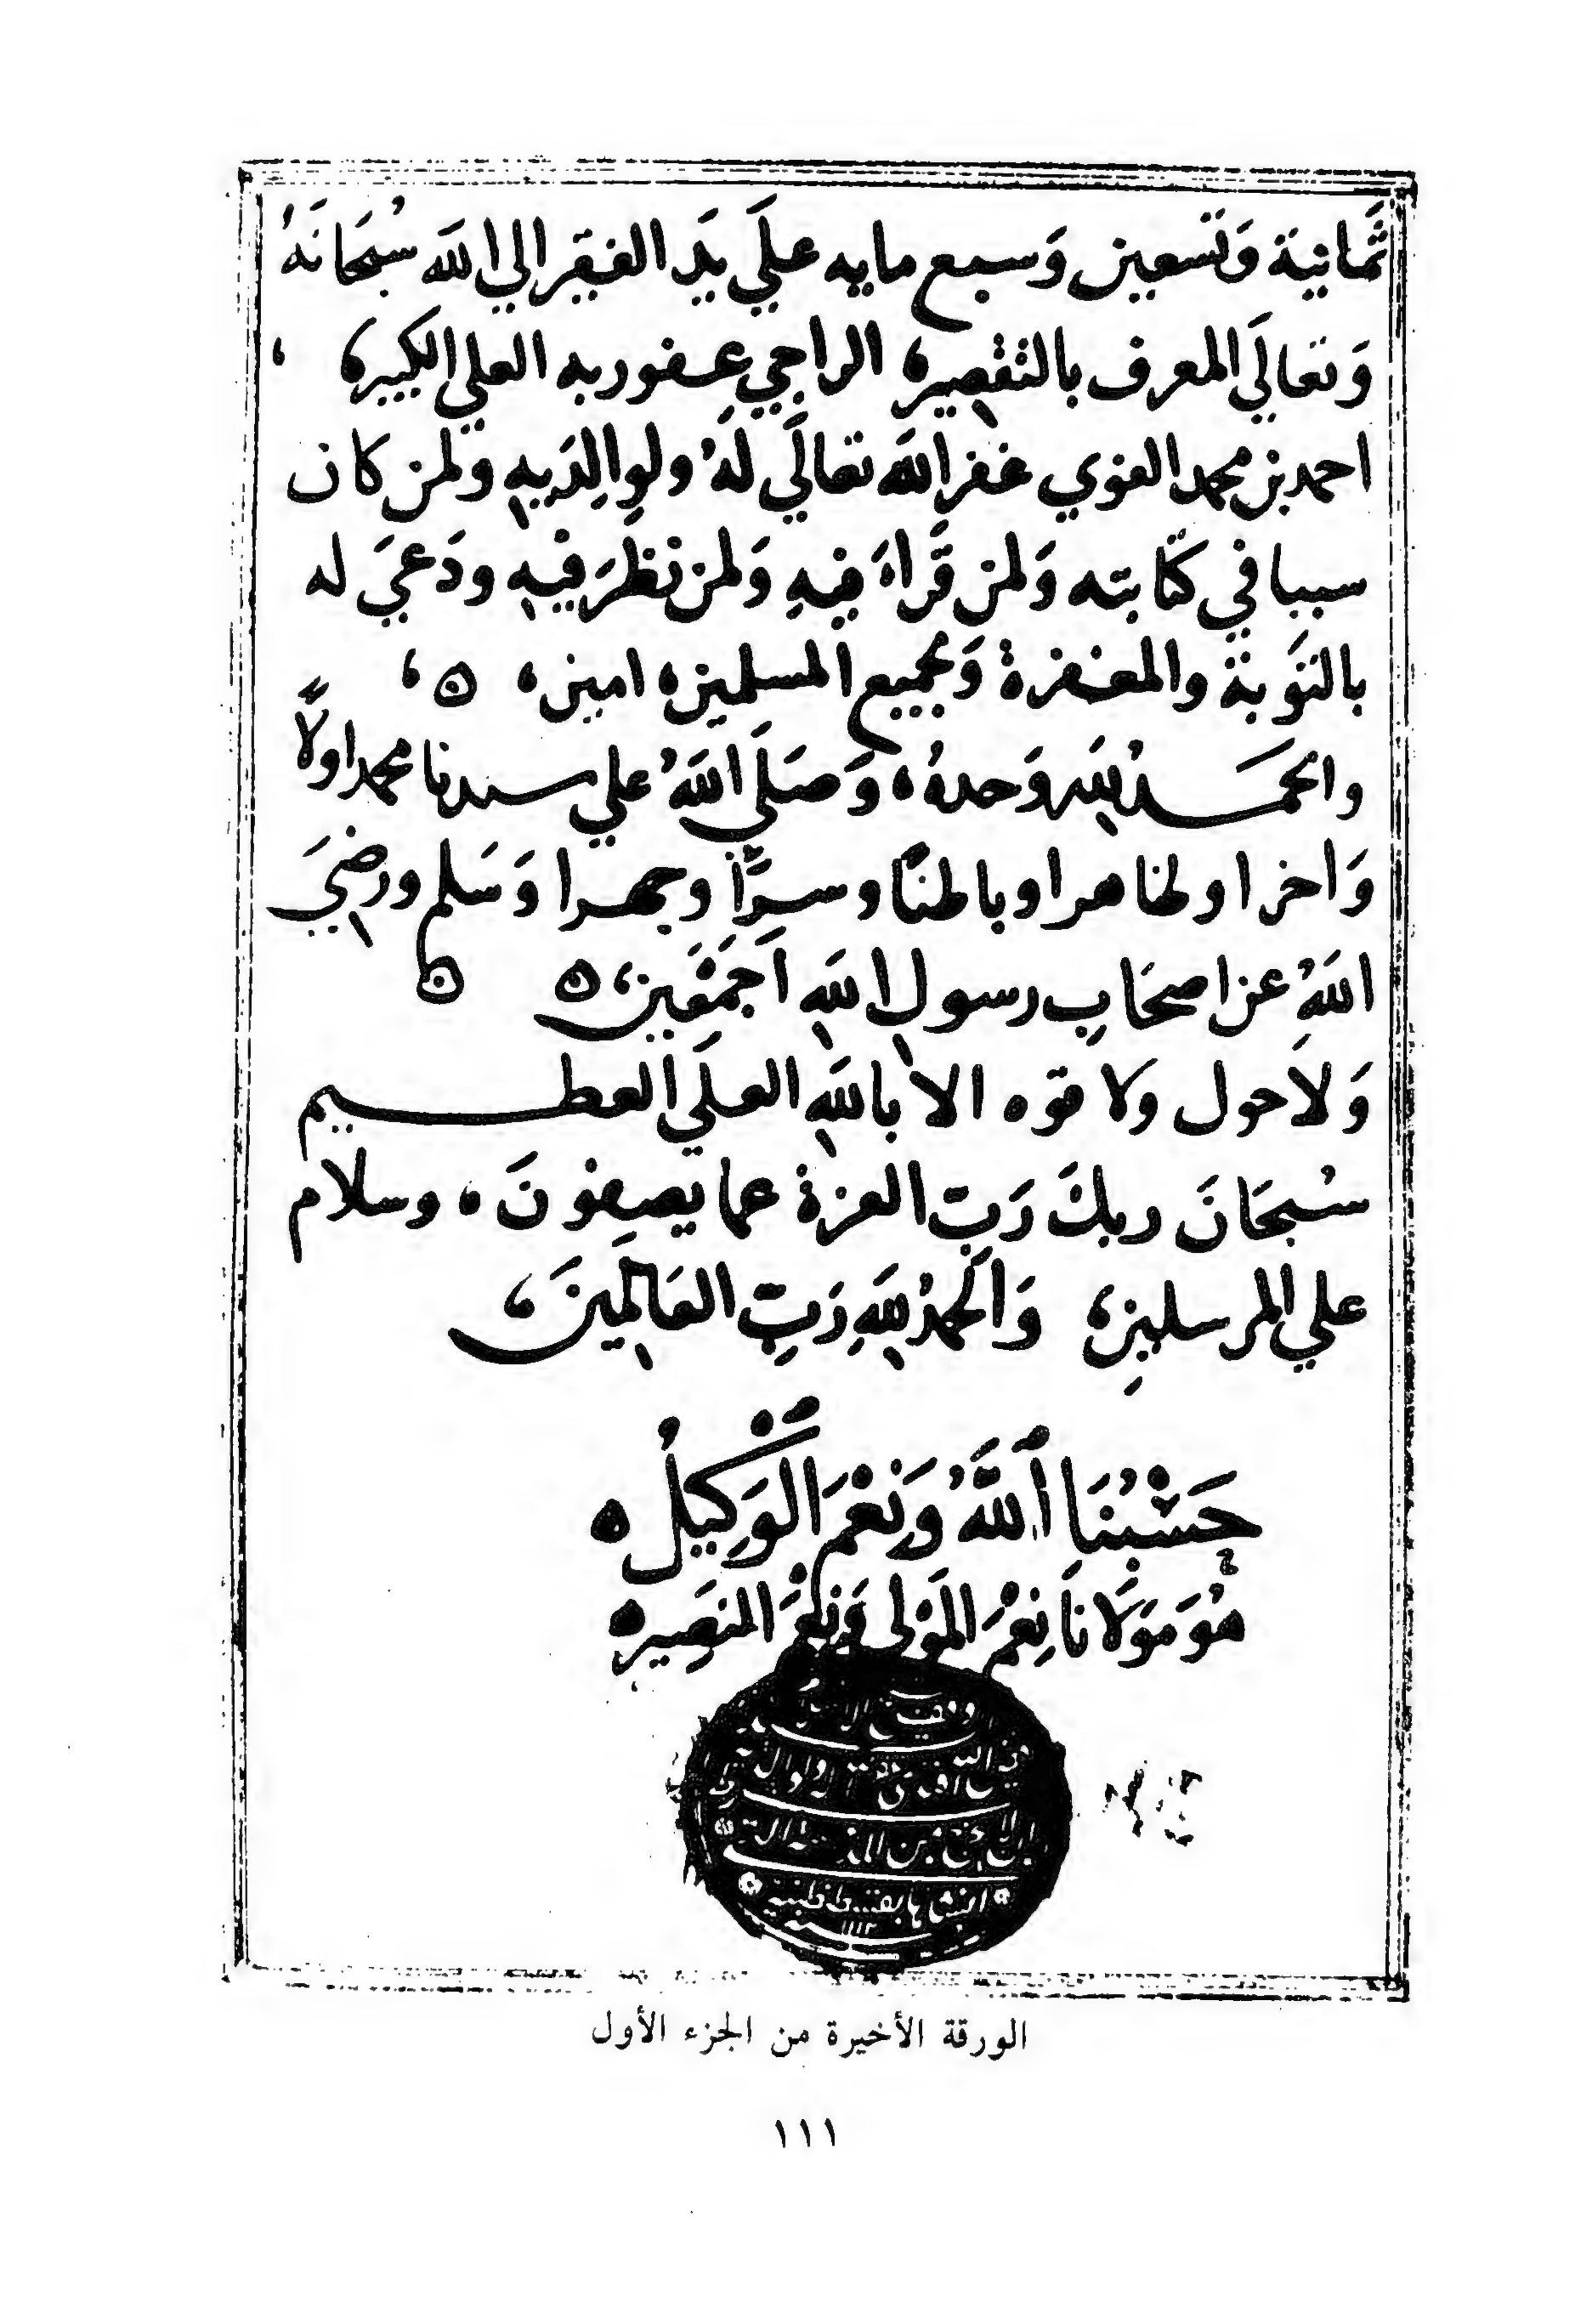 ثَمانية وَتسعين وَسبع مايه علَي يَد الفقير الي الله سُبحَانَهُ
وَتعالَي المعرف بالتقصير، الراجي عِفو ربه العلي الكبير، ،
احمد بن محمد الغزي غفر الله تعالَي لَهُ ولوِالِدَيهِ ولمن كان
سببا في كتابته وَلمن قَراءَ فِيهِ وَلمن نظَرَ فيهِ ودَعيَ له
بالتوَبة والمغفرة وَلجميع المسلمين، امين، ه ،
والحمدُ لِلّه وَحدهُ، وَصَلَي اللهُ علي سيدنا محمد اولاً
وَاخرا وظاهرا وباطناً وسِرّاً وجهرا وَسَلم ورضيَ
اللهُ عن اصحَابِ رسولِ اللهِ اَجمَعَين، ه ه
وَلاَحول ولا قوه الا باللهِ العلَي العظيم
سُبحَانَ ربك رَبِّ العزة عما يصِفونَ، وسلام
علي المرسلينِ، وَالحمدُ لِلَّهِ رَبِّ العَالِمَينَ،
حَسْبُنَا ٱللَّهُ وَنِعْمَ الْوَكِيلُ ه
هُوَ مَوَلانَا نِعْمَ المَوْلى وَنِعْمَ النصِير ه
الورقة الأخيرة من الجزء الأول
١١١